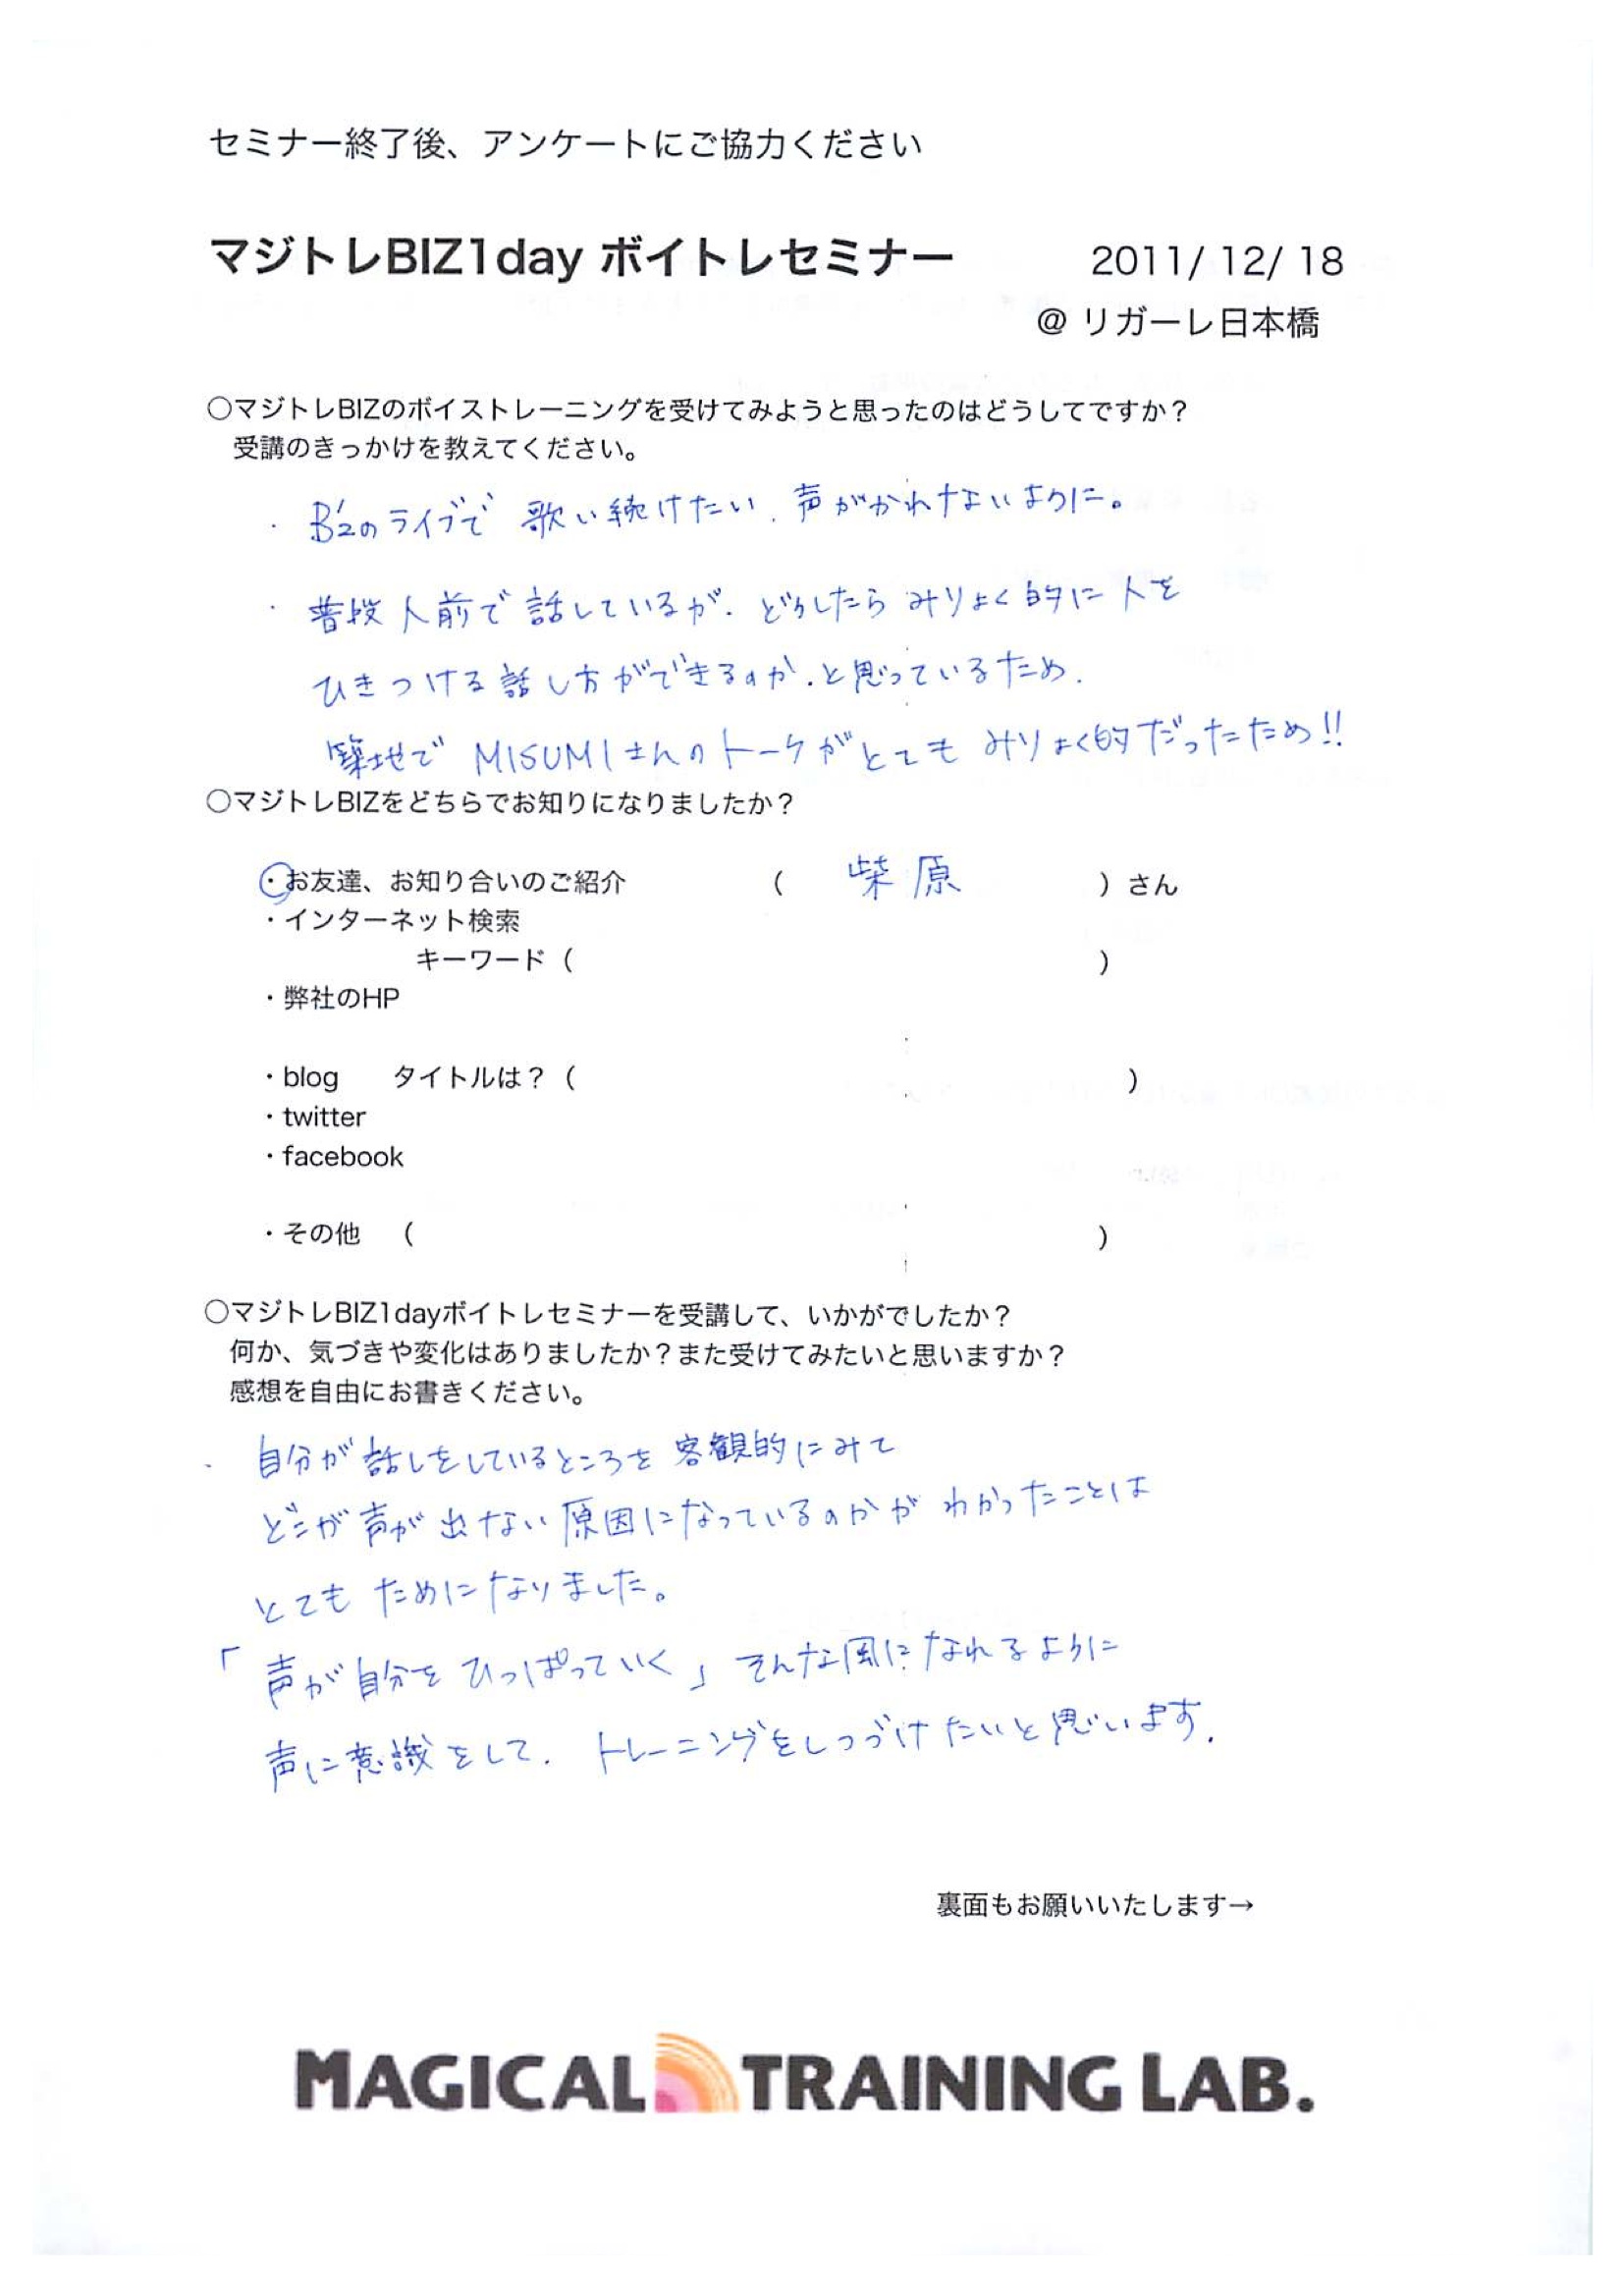 セミナー終了後、アンケートにご協力ください
マジトレBIZ1day ボイトレセミナー 2011/ 12/ 18
@ リガーレ日本橋
○マジトレBIZのボイストレーニングを受けてみようと思ったのはどうしてですか？
受講のきっかけを教えてください。
・ B'zのライブで 歌い続けたい. 声がかれないように。
・ 普段人前で話しているが. どうしたら みりょく的に人を
ひきつける話し方ができるのか.と思っているため.
築地で MISUMIさんのトークがとても みりょく的だったため!!
○マジトレBIZをどちらでお知りになりましたか？
・お友達、お知り合いのご紹介 ( 柴原 ) さん
・インターネット検索
キーワード ( )
・弊社のHP
・blog タイトルは？ ( )
・twitter
・facebook
・その他 ( )
○マジトレBIZ1dayボイトレセミナーを受講して、いかがでしたか？
何か、気づきや変化はありましたか？また受けてみたいと思いますか？
感想を自由にお書きください。
・ 自分が話しをしているところを 客観的にみて
どこが声が出ない原因になっているのかが わかったことは
とても ためになりました。
「声が自分を ひっぱっていく」 そんな風になれるように
声に意識をして. トレーニングをしつづけたいと思います.
裏面もお願いいたします→
MAGICAL TRAINING LAB.